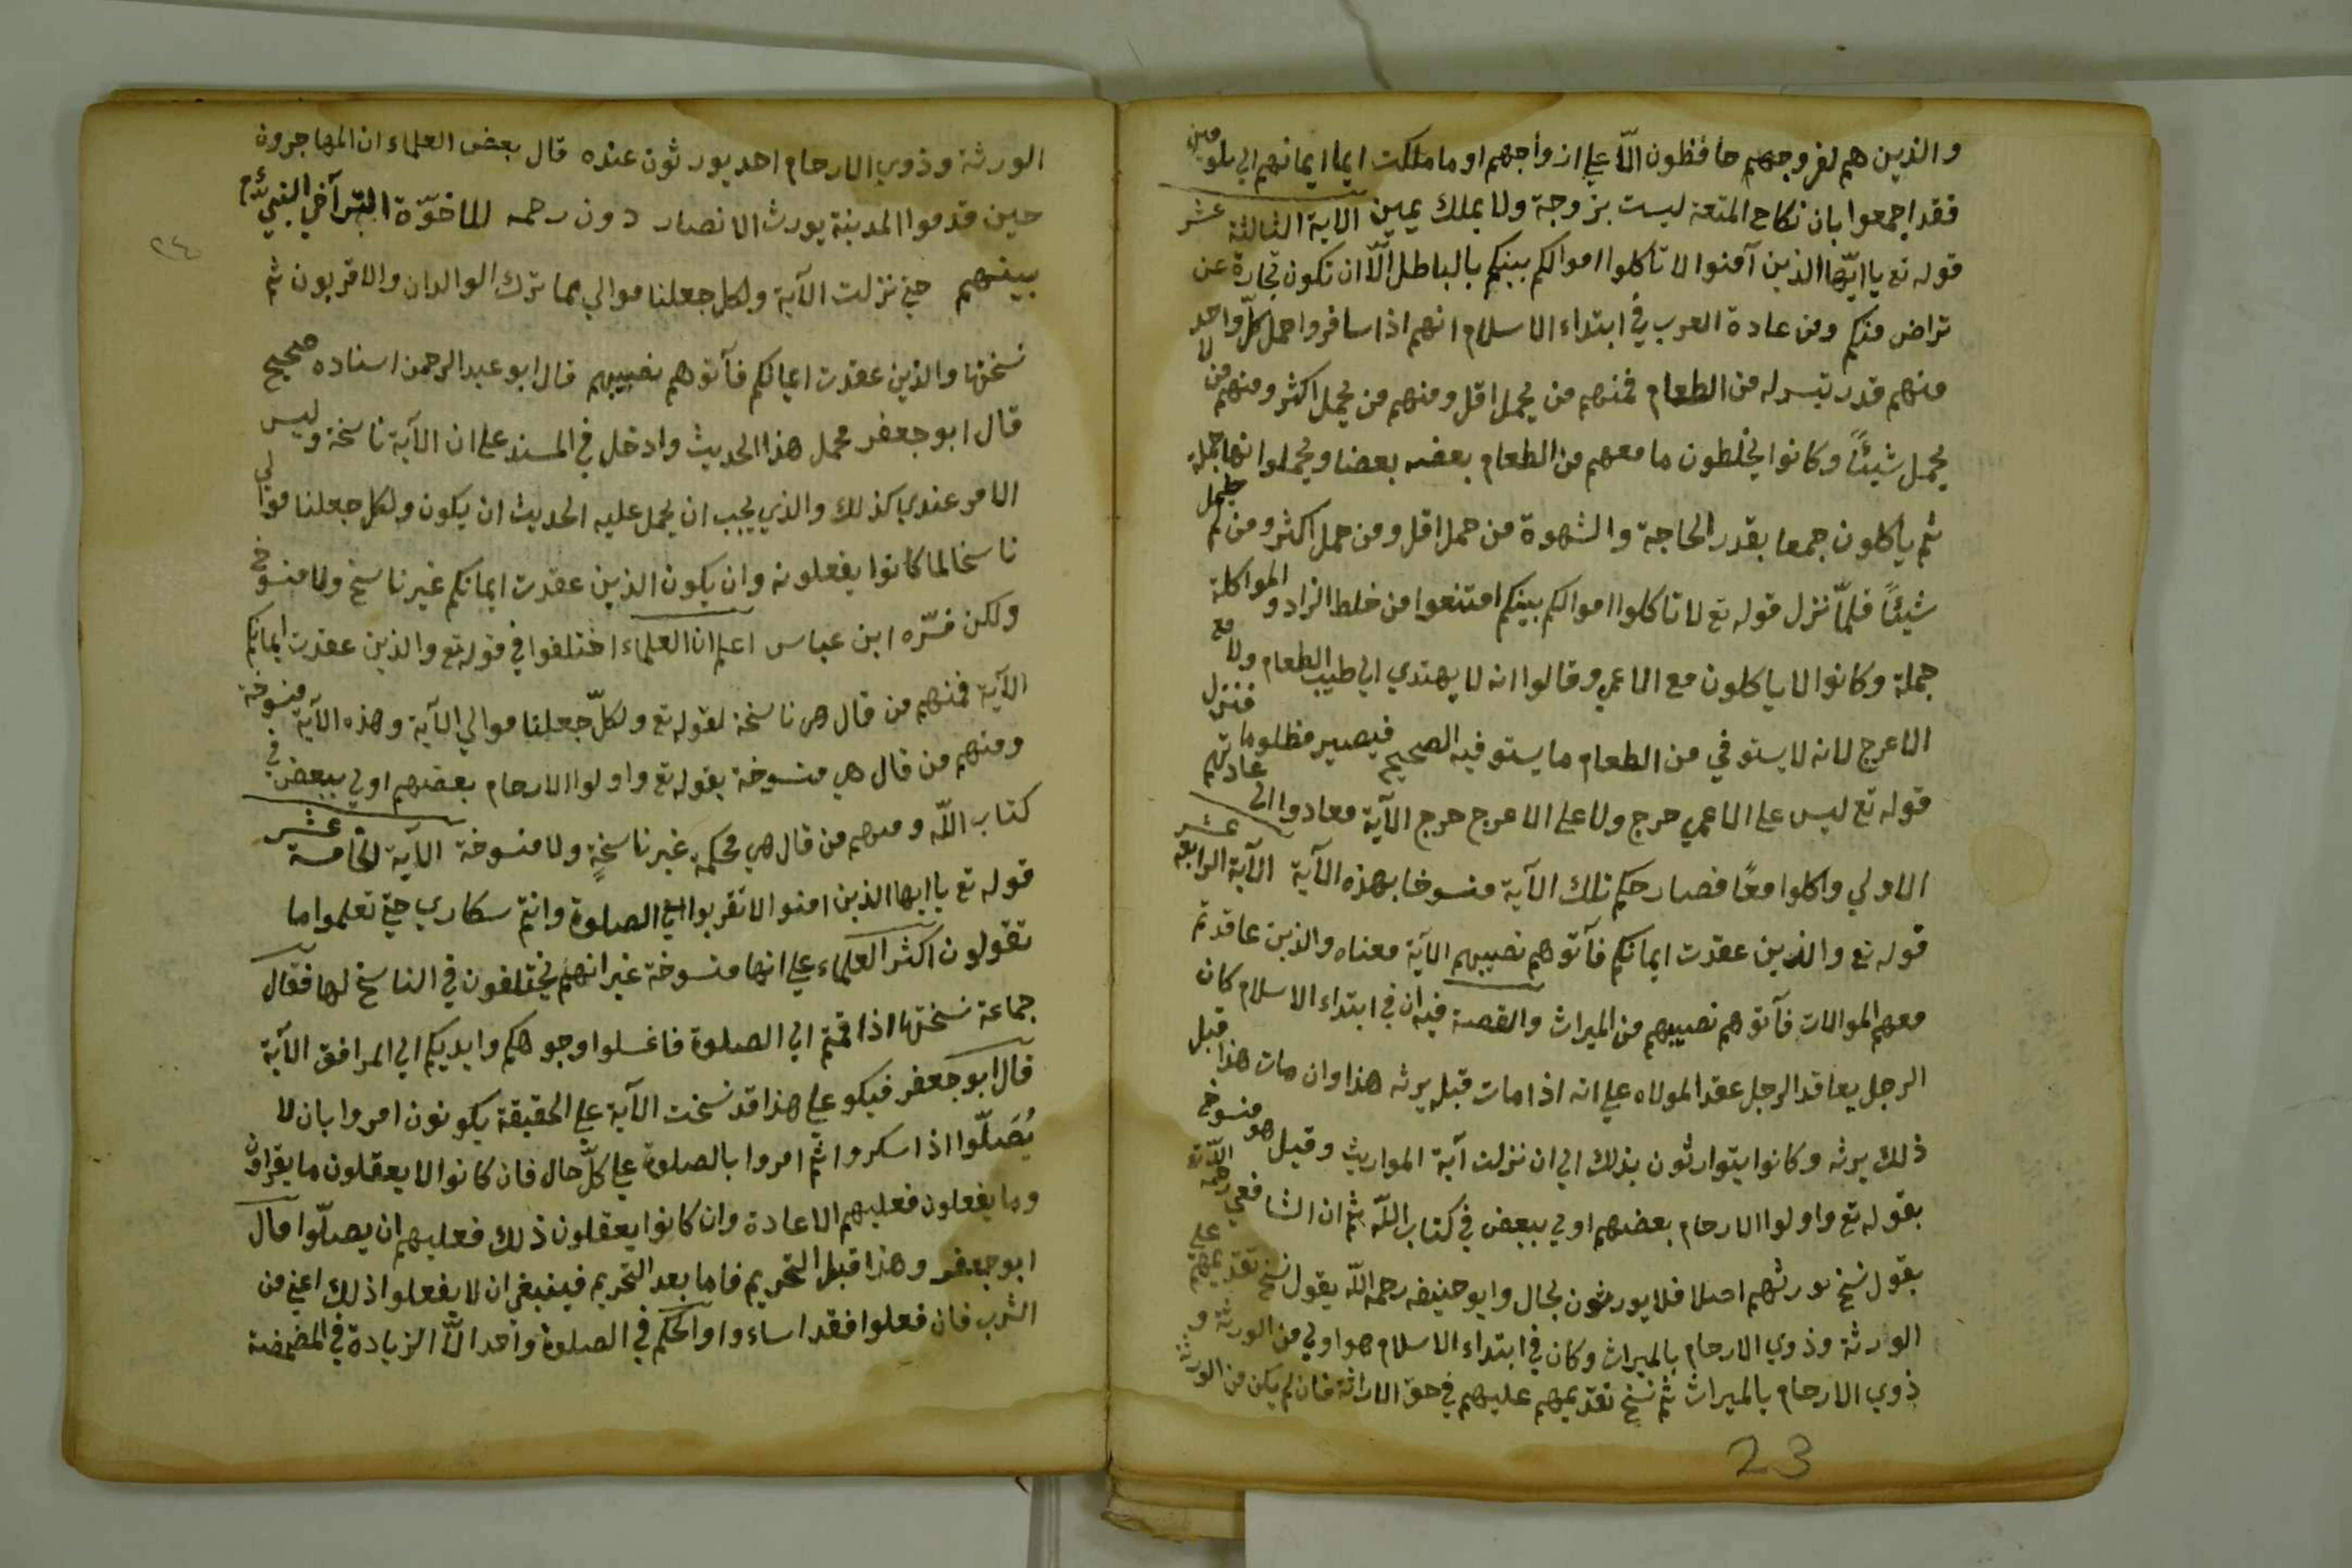 والذين هم لفروجهم حافظون الّا علي ازواجهم او ما ملكت ايما ايمانهم الي ملومين
فقد اجمعوا بان نكاح المتعة ليست بزوجة ولا بملك يمين الاية الثالثة عشر
قوله تع يا ايّها الذين آمنوا لا تأكلوا اموالكم بينكم بالباطل الّا ان تكون تجارة عن
تراض منكم ومن عادة العرب في ابتداء الاسلام انهم اذا سافروا حمل كلّ واحد
منهم قدر تيسر له من الطعام فمنهم من يحمل اقل ومنهم من يحمل اكثر ومنهم من لا
يحمل شيئًا وكانوا يخلطون ما معهم من الطعام بعضه بعضا ويجملوانها جملة
ثم ياكلون جمعا بقدر الحاجة والشهوة من حمل اقل ومن حمل اكثر ومن لم يحمل
شيئًا فلمّا نزل قوله تع لا تاكلوا اموالكم بينكم امتنعوا من خلط الزاد والمواكلة
جملة وكانوا لا ياكلون مع الاعمي وقالوا انه لا يهتدي الي طيب الطعام ولا مع
الاعرج لانه لا يستوفي من الطعام ما يستوفيه الصحيح فيصير مظلوما فنزل
قوله تع ليس علي الاعمي حرج ولا علي الاعرج حرج الآية معادوا الي عادتهم
الاولي واكلوا معًا فصار حكم تلك الآية منسوخا بهذه الآية الآية الرابعة عشر
قوله تع والذين عقدت ايمانكم فآتوهم نصيبهم الآية معناه والذين عاقدتم
معهم الموالات فآتوهم نصيبهم من الميراث والقصة فيه ان في ابتداء الاسلام كان
الرجل يعاقد الرجل عقد المولاه علي انه اذا مات قبله يرثه هذا وان مات هذا قبل
ذلك يرثه وكانوا يتوارثون بذلك الي ان نزلت آية المواريث وقيل هو منسوخ
بقوله تع واولوا الارحام بعضهم اولي ببعض في كتاب اللّه ثم ان الشافعي رحمه اللّه
بقول نسخ اصلا فلا يورثون بحال وابو حنيفه رحمه اللّه يقول نسخ تقديمهم علي
الورثة وذوي الارحام بالميراث وكان في ابتداء الاسلام هو اولي من الورثة و
ذوي الارحام بالميراث ثم نسخ تقديمهم عليهم في حق الاراثة فان لم يكن من الورثة
23
٢٤
الورثة وذوي الارحام احد يورثون عنده قال بعض العلماء ان المهاجرون
حين قدموا المدينة يورث الانصار دون رحمه للاخوّة التي آخي النبي
بينهم حتي نزلت الآية ولكل جعلنا موالي مما ترك الوالدان والاقربون ثم
نسختها والذين عقدت ايمالكم فآتوهم نصيبهم قال ابو عبد الرحمن اسناده صحيح
قال ابو جعفر محمل هذا الحديث وادخل في المسند علي ان الآية ناسخة وليس
الامر عندي كذلك والذي يجب ان يحمل عليه الحديث ان يكون ولكل جعلنا موالي
ناسخا لما كانوا يفعلونه وان يكون الذين عقدت ايمانكم غير ناسخ ولا منسوخ
ولكن فسّره ابن عباس اعلم ان العلماء اختلفوا في قوله تع والذين عقدت ايمانكم
الآية فمنهم من قال هي ناسخة لقوله تع ولكلّ جعلنا موالي الآية وهذه الآية منسوخة
ومنهم من قال هي منسوخة بقوله تع واولوا الارحام بعضهم اولي ببعض في
كتاب اللّه ومنهم من قال هي محكمة غير ناسخةٍ ولا منسوخة الآية الخامسة عشر
قوله تع يا ايها الذين امنوا لا تقربوا الصلوة وانتم سكاري حتي تعلموا ما
تقولون اكثر العلماء علي انها منسوخة غير انهم يختلفون في الناسخ لها فقال
جماعة نسختها اذا قمتم الي الصلوة فاغسلوا وجوهكم وايديكم الي المرافق الآية
قال ابو جعفر فيكو علي هذا قد نسخت الآية علي الحقيقة يكونون امروا بان لا
يُصَلّوا اذا سكروا ثم امروا بالصلوة علي كلّ حال فان كانوا لا يعقلون ما يقراون
وما يفعلون فعليهم الاعادة وان كانوا يعقلون ذلك فعليهم ان يصلّوا قال
ابو جعفر وهذا قبل التحريم فاما بعد التحريم فينبغي ان لا يفعلوا ذلك اعني من
الشرب فان فعلوا فقد اساءوا والحكم في الصلوة واحد الّا الزيادة في المضمضة